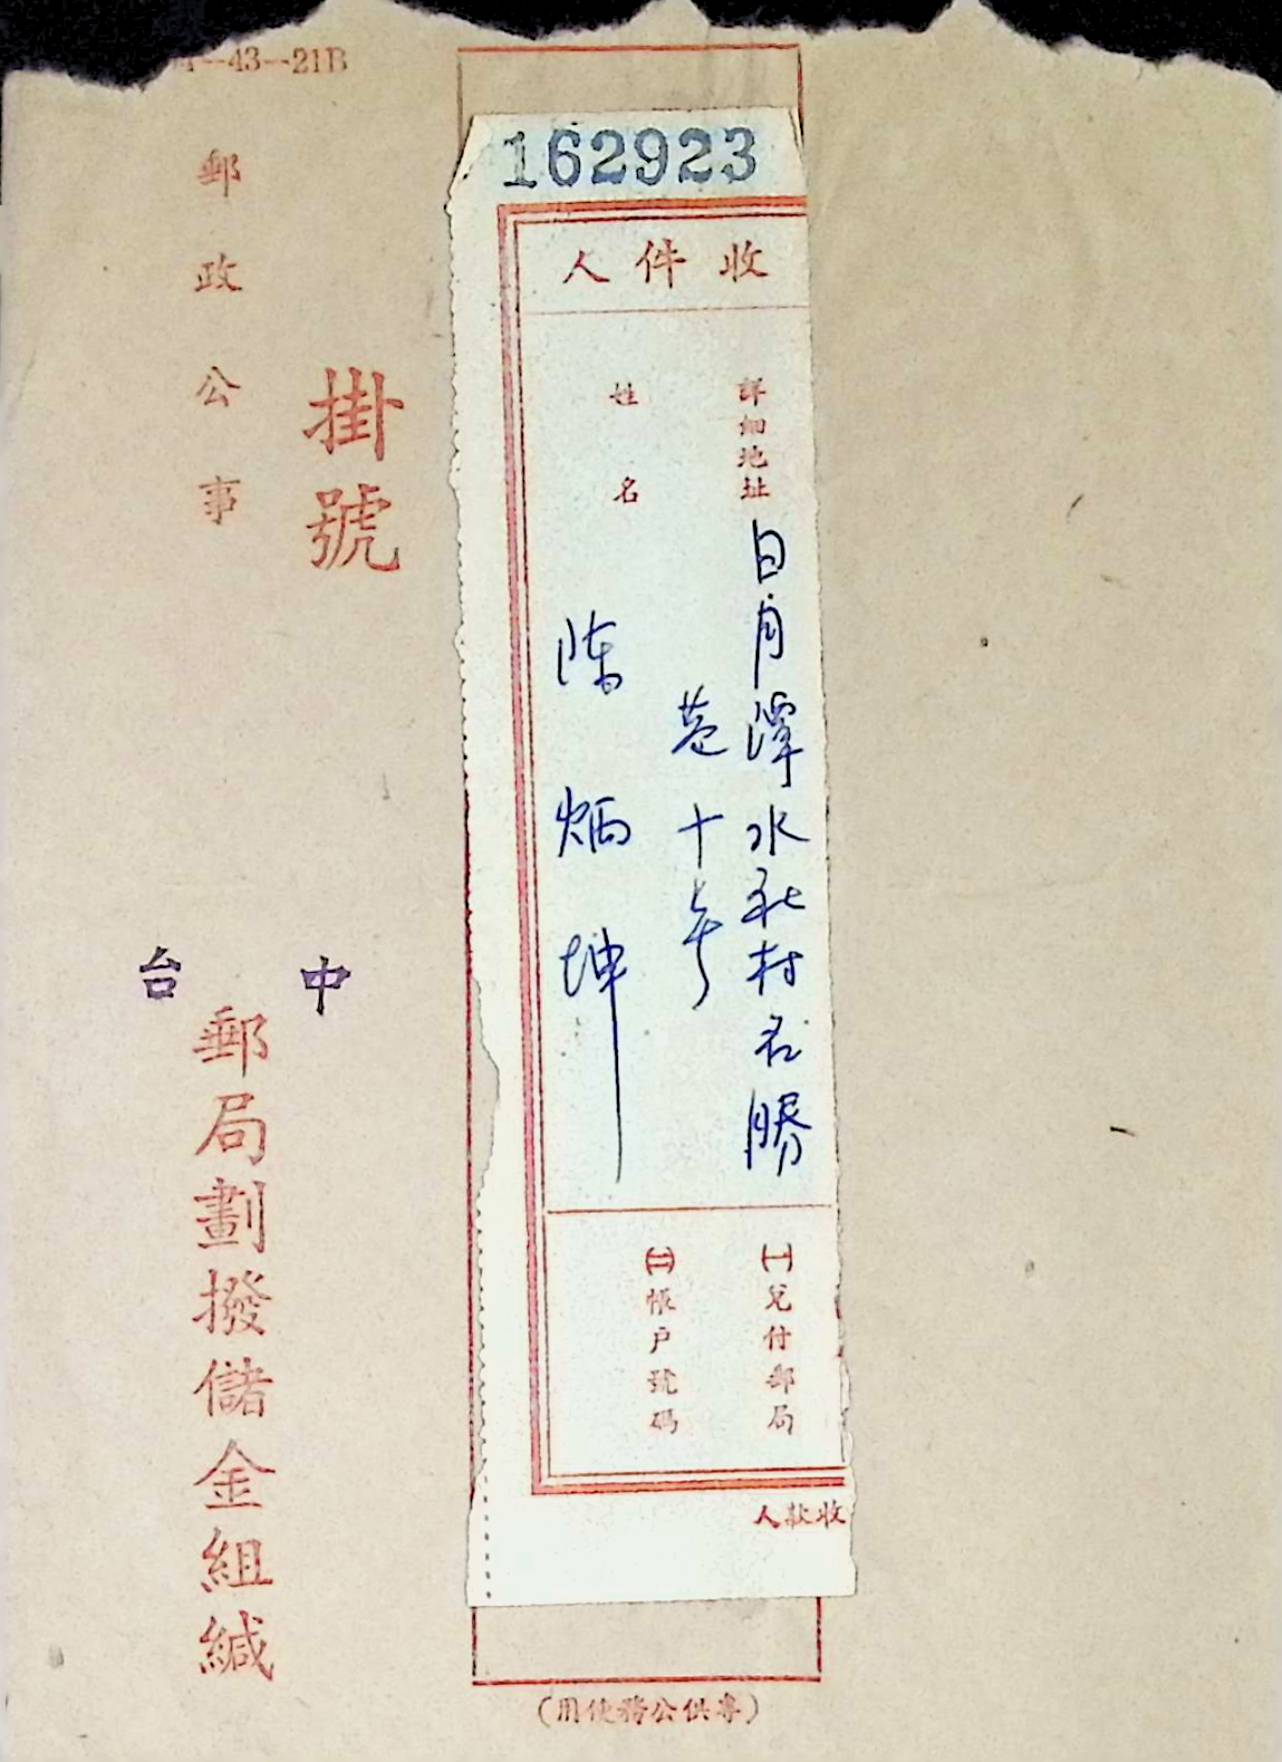 -43--21B
162923
收件人
詳細地址
日月潭水社村名勝
巷十号
姓名
陈炳坤
㈠兌付郵局
㈡帳戶號碼
收款人
掛號
郵政公事
台中
郵局劃撥儲金組緘
(專供公務使用)